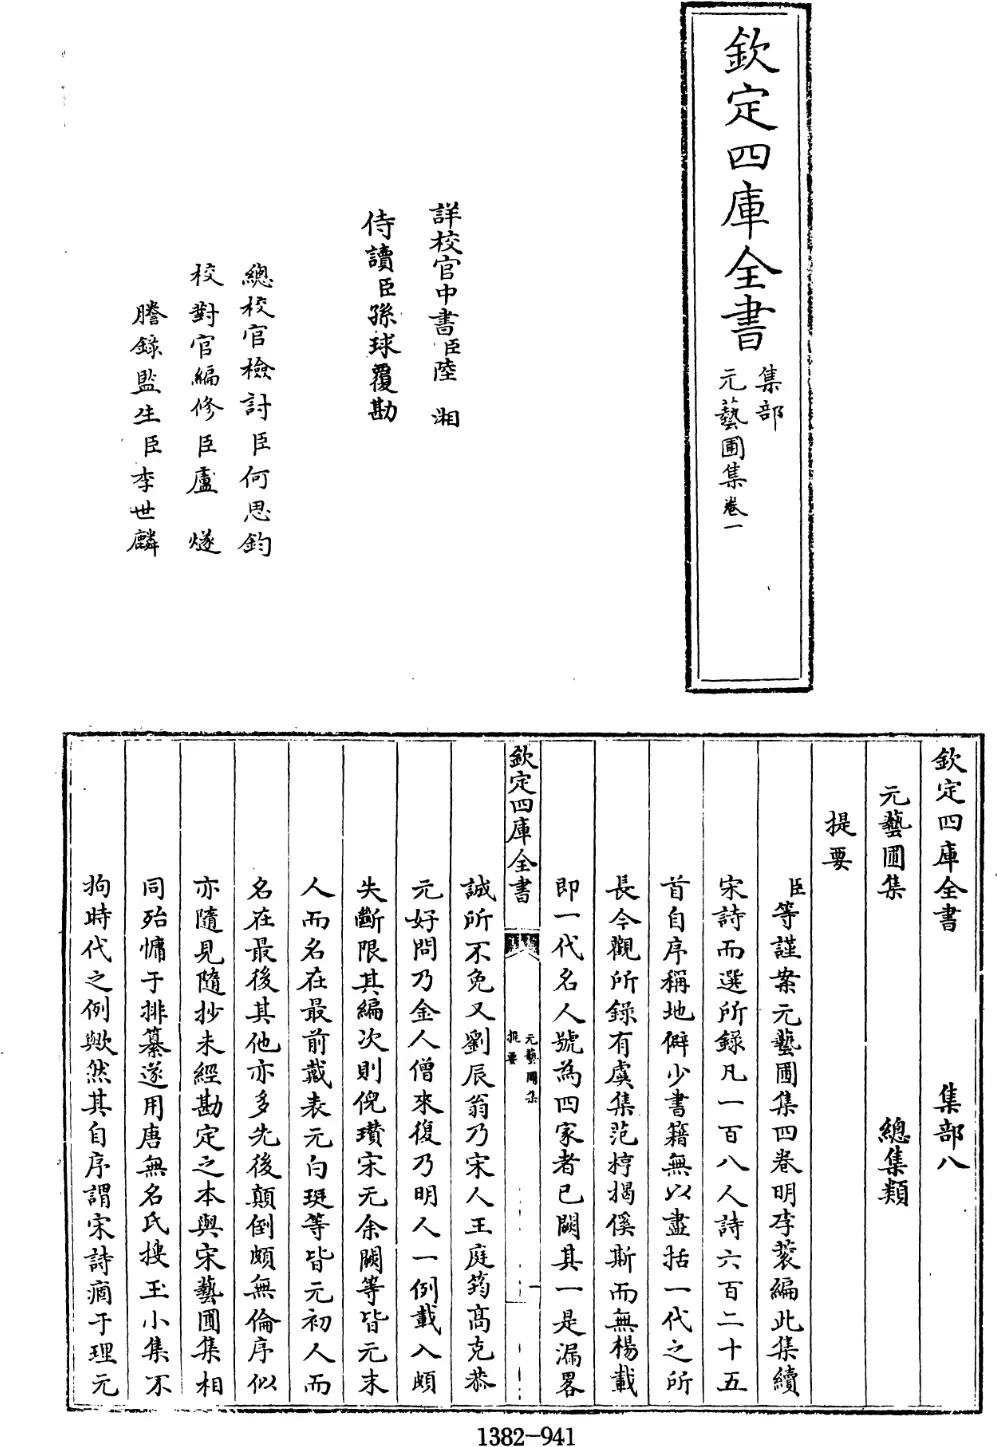 欽定四庫全書
集部
元藝圃集卷一
詳校官中書臣陸湘
侍讀臣孫球覆勘
總校官檢討臣何思鈞
校對官編修臣盧燧
謄錄監生臣李世麟
欽定四庫全書 集部八
元藝圃集 總集類
提要
臣等謹案元藝圃集四卷明李蓘編此集續
宋詩而選所錄凡一百八人詩六百二十五
首自序稱地僻少書籍無以盡括一代之所
長今觀所錄有虞集范梈揭傒斯而無楊載
即一代名人號為四家者已闕其一是漏畧
欽定四庫全書
元藝圃集
提要
一
誠所不免又劉辰翁乃宋人王庭筠高克恭
元好問乃金人僧來復乃明人一例載入頗
失斷限其編次則倪瓚宋元余闕等皆元末
人而名在最前戴表元白珽等皆元初人而
名在最後其他亦多先後顛倒頗無倫序似
亦隨見隨抄未經勘定之本與宋藝圃集相
同殆慵于排纂遂用唐無名氏搜玉小集不
拘時代之例歟然其自序謂宋詩痼于理元
1382-941